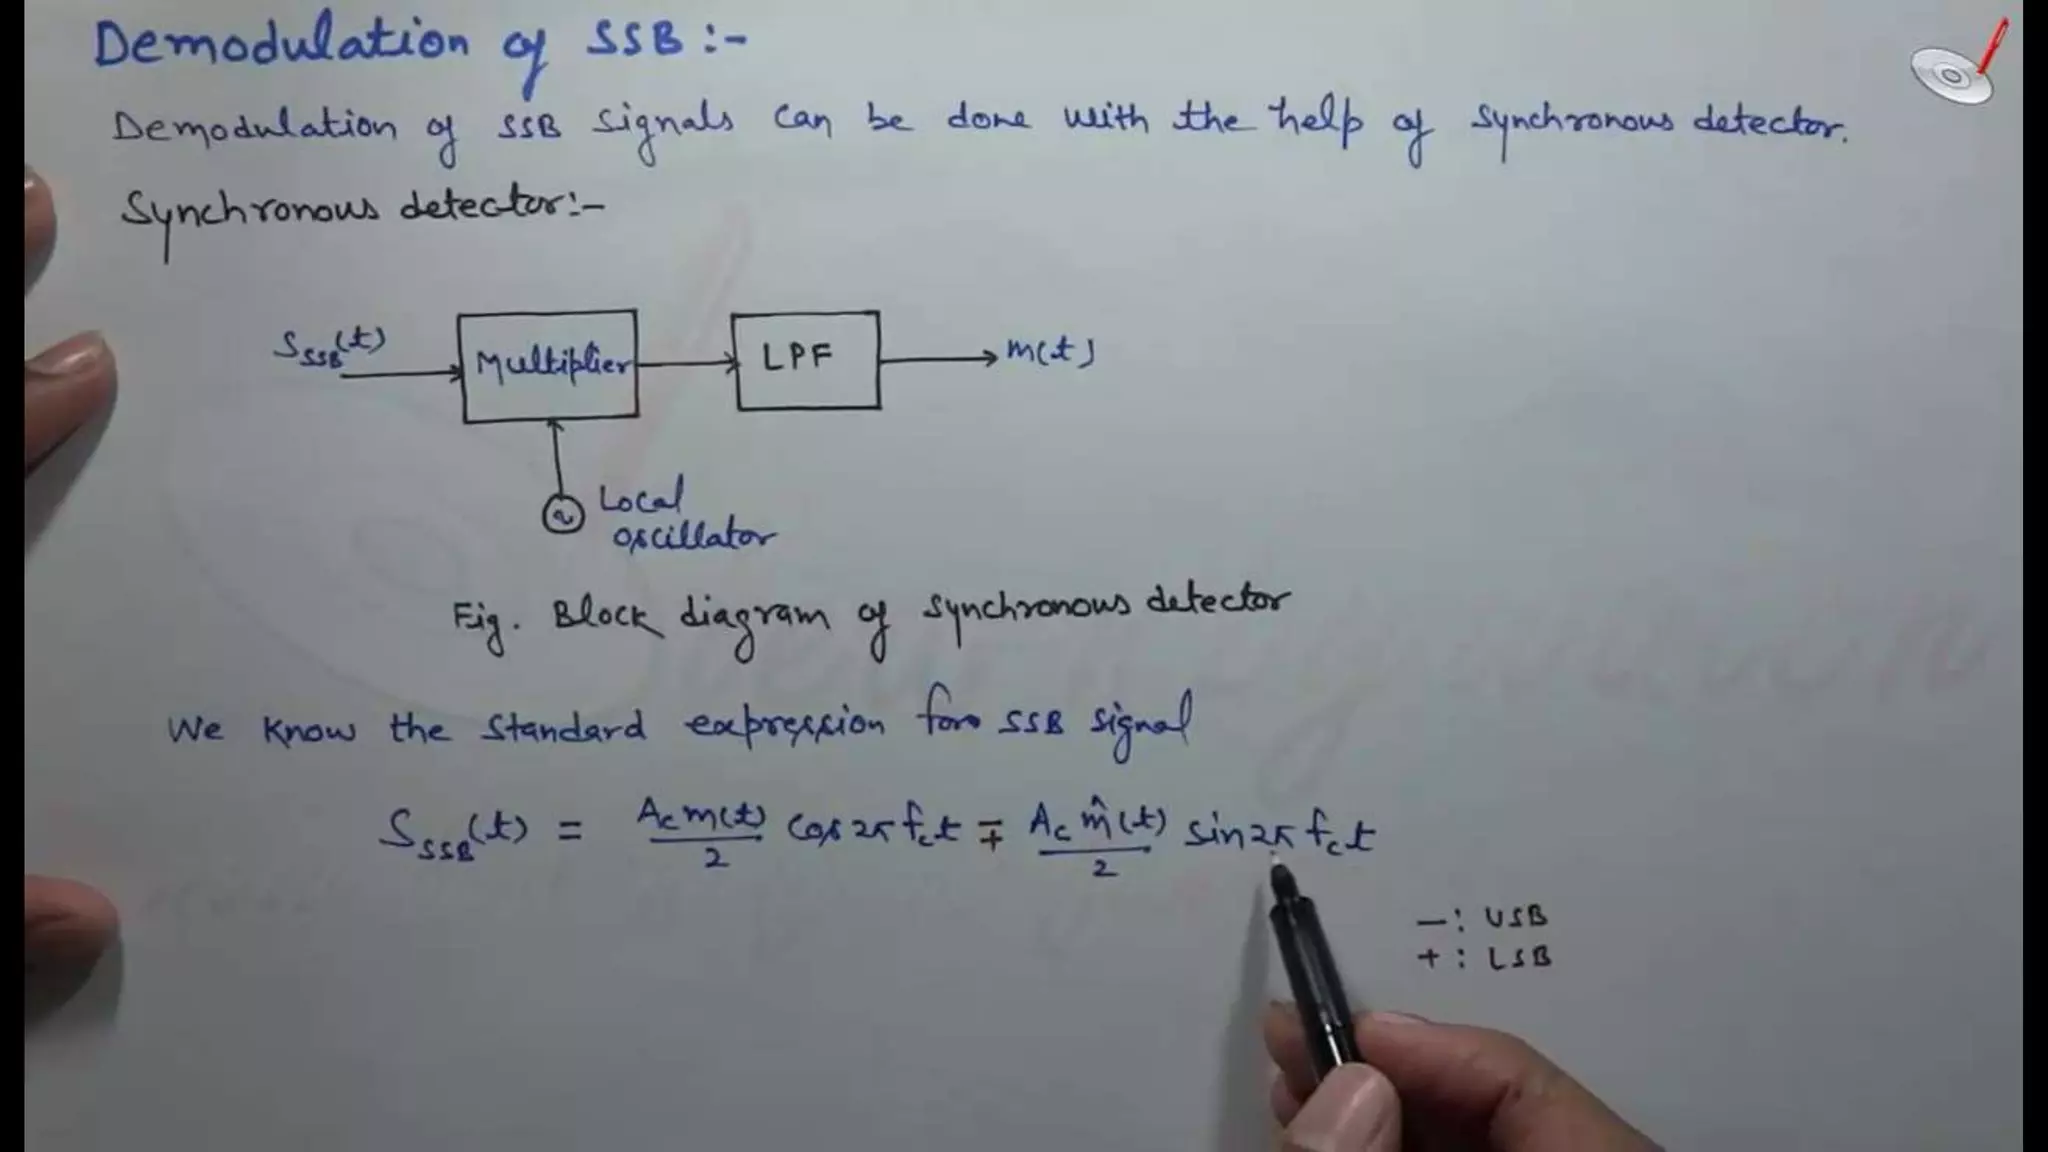 Demodulation of SSB :-
Demodulation of SSB signals can be done with the help of synchronous detector.
Synchronous detector:-
S_SSB(t)
Multiplier
LPF
m(t)
~ Local
oscillator
Fig. Block diagram of synchronous detector
We know the standard expression for SSB signal
S_SSB(t) = A_c m(t)/2 cos 2π f_c t ∓ A_c m̂(t)/2 sin 2π f_c t
- : USB
+ : LSB